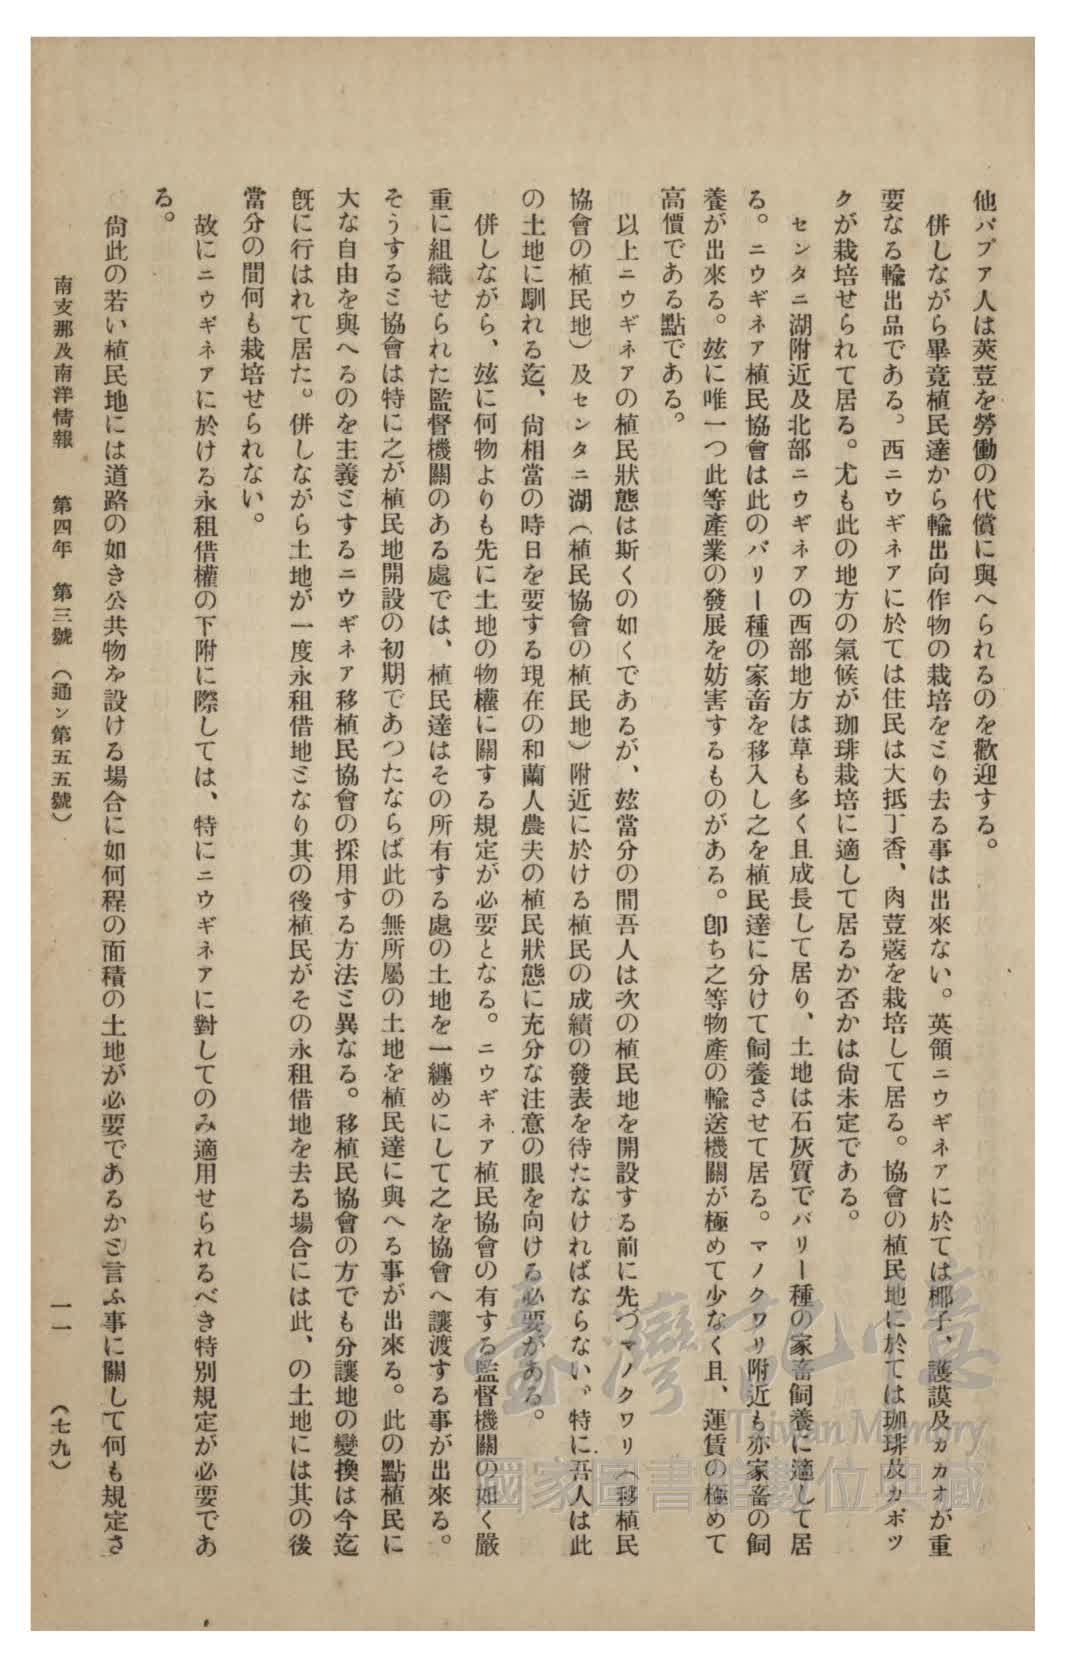 他パプア人は莢荳を勞働の代償に與へられるのを歡迎する。
併しながら畢竟植民達から輸出向作物の栽培をとり去る事は出來ない。英領ニウギネアに於ては椰子、護謨及カカオが重
要なる輸出品である。西ニウギネアに於ては住民は大抵丁香、肉荳蔲を栽培して居る。協會の植民地に於ては珈琲及カポツ
クが栽培せられて居る。尤も此の地方の氣候が珈琲栽培に適して居るか否かは尙未定である。
センタニ湖附近及北部ニウギネアの西部地方は草も多く且成長して居り、土地は石灰質でバリー種の家畜飼養に適して居
る。ニウギネア植民協會は此のバリー種の家畜を移入し之を植民達に分けて飼養させて居る。マノクワリ附近も亦家畜の飼
養が出來る。玆に唯一つ此等產業の發展を妨害するものがある。卽ち之等物產の輸送機關が極めて少なく且、運賃の極めて
高價である點である。
以上ニウギネアの植民狀態は斯くの如くであるが、玆當分の間吾人は次の植民地を開設する前に先づマノクワリ（移植民
協會の植民地）及センタニ湖（植民協會の植民地）附近に於ける植民の成績の發表を待たなければならない。特に吾人は此
の土地に馴れる迄、尙相當の時日を要する現在の和蘭人農夫の植民狀態に充分な注意の眼を向ける必要がある。
併しながら、玆に何物よりも先に土地の物權に關する規定が必要となる。ニウギネア植民協會の有する監督機關の如く嚴
重に組織せられた監督機關のある處では、植民達はその所有する處の土地を一纏めにして之を協會へ讓渡する事が出來る。
そうすると協會は特に之が植民地開設の初期であつたならば此の無所屬の土地を植民達に與へる事が出來る。此の點植民に
大な自由を與へるのを主義とするニウギネア移植民協會の採用する方法と異なる。移植民協會の方でも分讓地の變換は今迄
旣に行はれて居た。併しながら土地が一度永租借地となり其の後植民がその永租借地を去る場合には此、の土地には其の後
當分の間何も栽培せられない。
故にニウギネアに於ける永租借權の下附に際しては、特にニウギネアに對してのみ適用せられるべき特別規定が必要であ
る。
尙此の若い植民地には道路の如き公共物を設ける場合に如何程の面積の土地が必要であるかと言ふ事に關して何も規定さ
南支那及南洋情報　第四年　第三號　（通ン第五五號）　一一　（七九）
臺灣記憶
Taiwan Memory
國家圖書館數位典藏